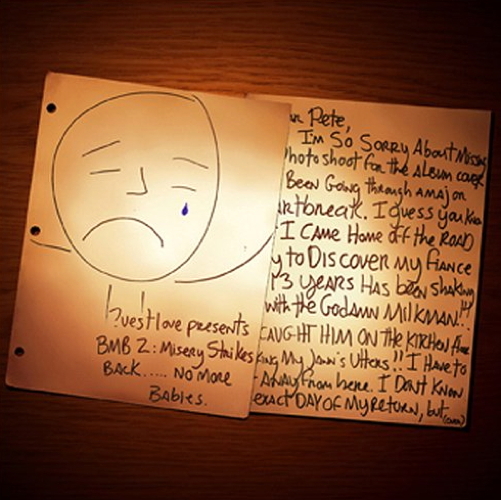 ?uestlove presents
BMB 2: Misery Strikes
BACK..... NO MORE
BABIES.
Pete,
I'm So SORRY About Missing
Photo shoot for the Album cover
Been Going through a major
I Guess you know
I CAME Home off the ROAD
to Discover my fiance
3 years Has been shaking
with the GoDamn Milkman!!!
CAUGHT HIM ON THE KITCHEN floor
My Jawn's Utters!! I Have to
AWAY from here. I Dont Know
exact DAY of My Return, but
(over)